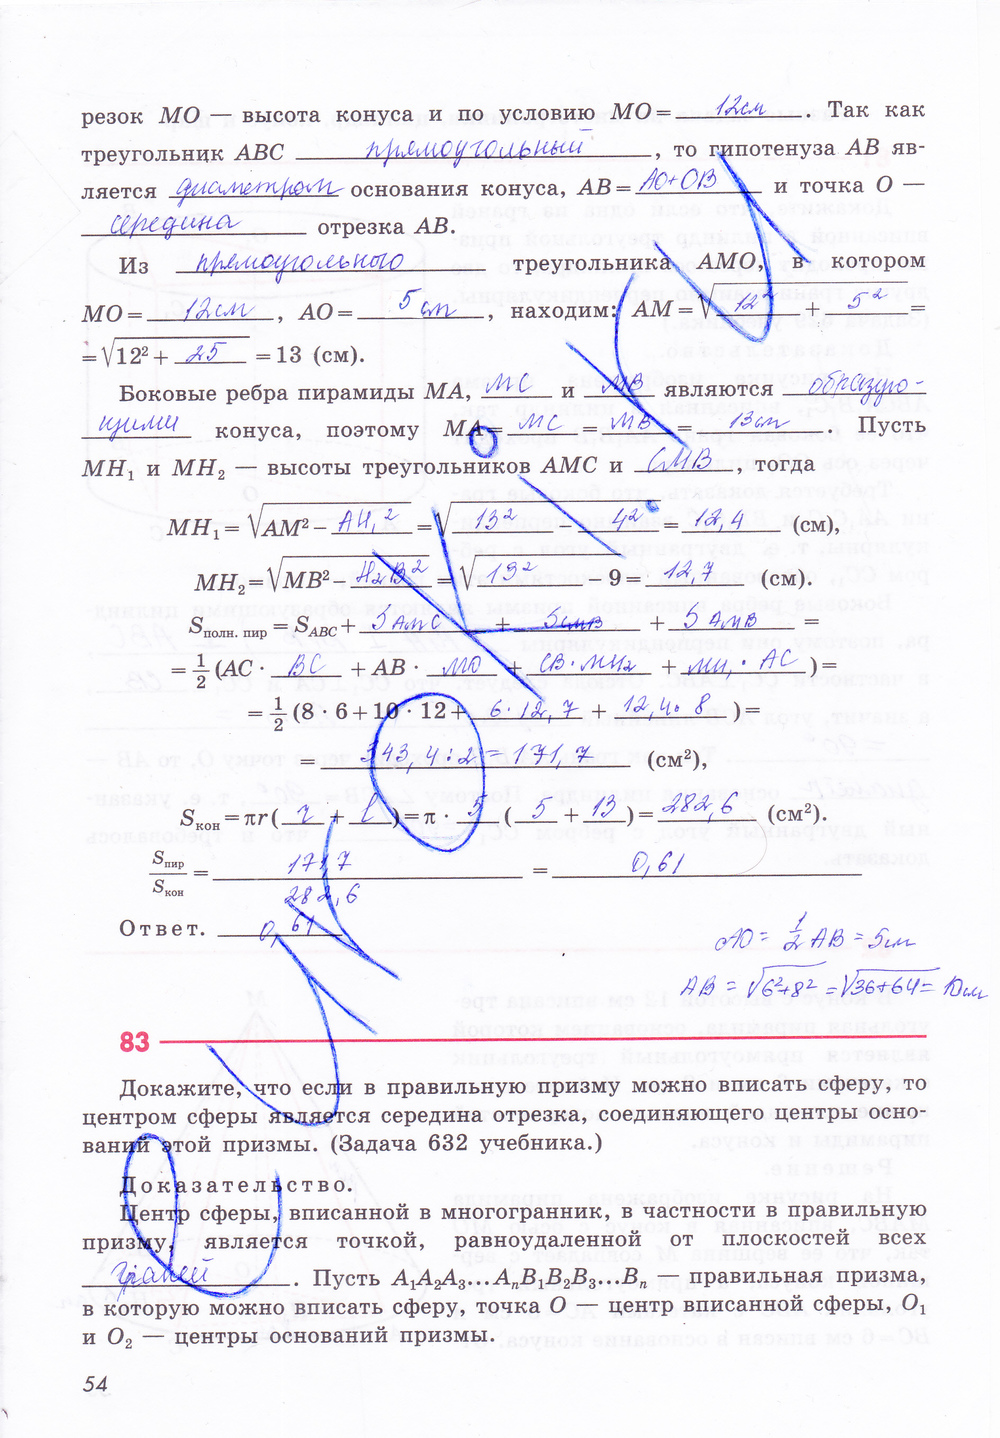 резок MO — высота конуса и по условию MO = 12см. Так как
треугольник ABC прямоугольный, то гипотенуза AB яв-
ляется диаметром основания конуса, AB = AO+OB и точка O —
середина отрезка AB.
Из прямоугольного треугольника AMO, в котором
MO = 12см, AO = 5см, находим: AM = √12² + 5² =
= √12² + 25 = 13 (см).
Боковые ребра пирамиды MA, MC и MB являются образую-
щими конуса, поэтому MA = MC = MB = 13см. Пусть
MH₁ и MH₂ — высоты треугольников AMC и CMB, тогда
MH₁ = √AM² − AH₁² = √13² 4² = 12,4 (см),
MH₂ = √MB² − H₂B² = √13² − 9 = 12,7 (см).
Sполн. пир = SABC + SAMC + SCMB + SAMB =
= 1/2 (AC · BC + AB · MO + CB·MH₂ + MH₁·AC) =
= 1/2 (8 · 6 + 10 · 12 + 6·12,7 + 12,4·8) =
= 343,4:2 = 171,7 (см²),
Sкон = πr(r + l) = π · 5 (5 + 13) = 282,6 (см²).
Sпир/Sкон = 171,7/282,6 = 0,61
Ответ. 0,61
AO = 1/2 AB = 5см
AB = √6²+8² = √36+64 = 10см
83
Докажите, что если в правильную призму можно вписать сферу, то
центром сферы является середина отрезка, соединяющего центры осно-
ваний этой призмы. (Задача 632 учебника.)
Доказательство.
Центр сферы, вписанной в многогранник, в частности в правильную
призму, является точкой, равноудаленной от плоскостей всех
граней. Пусть A₁A₂A₃...AₙB₁B₂B₃...Bₙ — правильная призма,
в которую можно вписать сферу, точка O — центр вписанной сферы, O₁
и O₂ — центры оснований призмы.
54